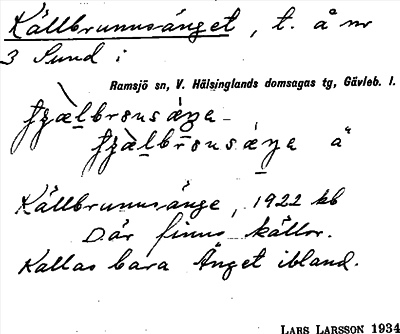 Källbrunnsänget, t. å nr
3 Sund i
Ramsjö sn, V. Hälsinglands domsagas tg, Gävleb. l.
å
Källbrunnsänge, 1922 kb
Där finns källor.
Kallas bara Änget ibland.
LARS LARSSON 1934